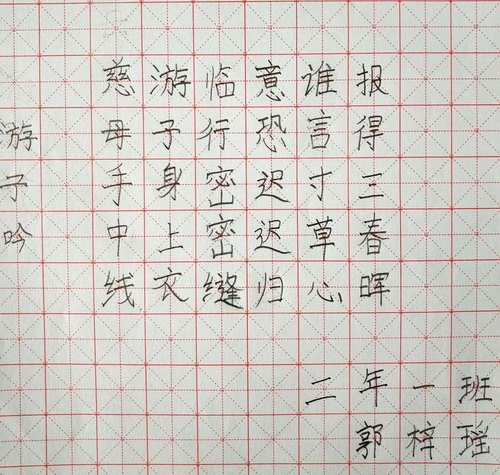 游子吟
慈母手中线
游子身上衣
临行密密缝
意恐迟迟归
谁言寸草心
报得三春晖
二年一班
郭梓瑶